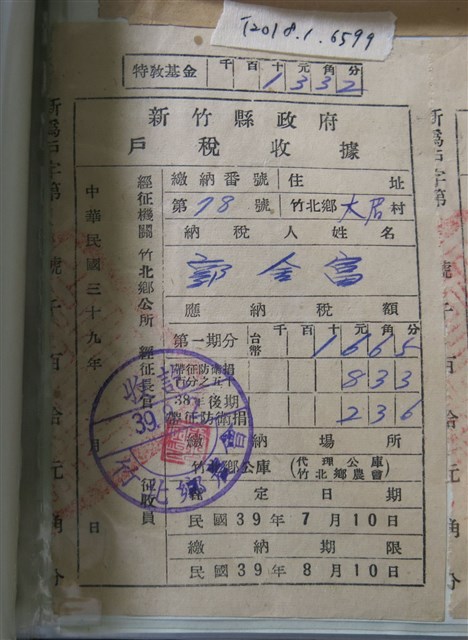 T2018.1.6599
特教基金 千百十元角分
1332
新竹縣政府
戶稅收據
中華民國三十九年 月 日
經征機關 竹北鄉公所 經征長官 征收員
繳納番號 住址
第78號 竹北鄉大眉村
納稅人姓名
郭金富
應納稅額
千百十元角分
第一期分 台幣 1665
帶征防衛捐百分之五十 833
38年後期帶征防衛捐 236
繳納場所
竹北鄉公庫 (代理公庫 竹北鄉農會)
定日期
民國39年7月10日
繳納期限
民國39年8月10日
收訖
39.8
竹北鄉農會
新爲戶字第 號 千百拾元角分